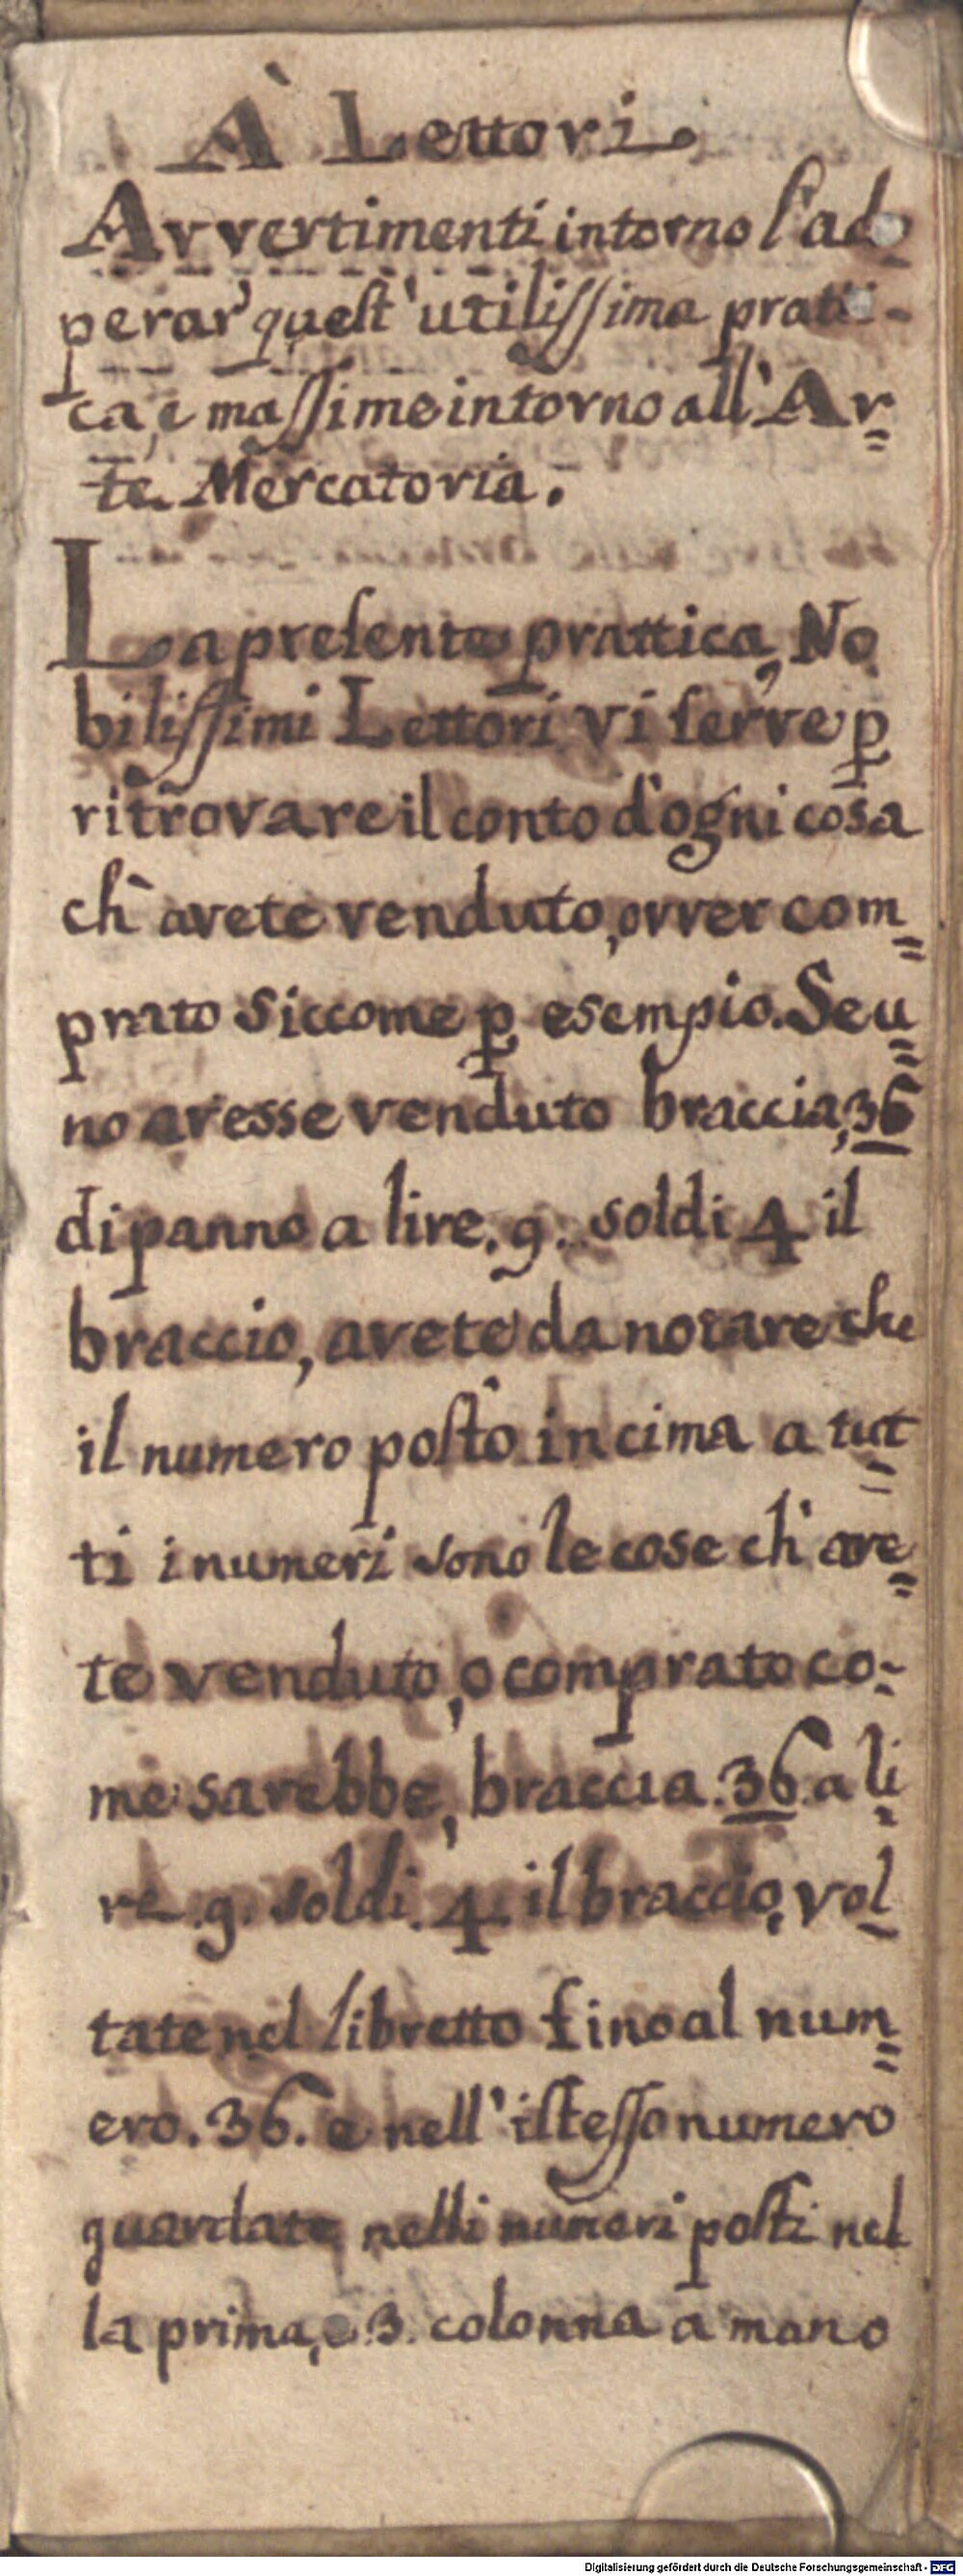 À Lettori.
Avvertimenti intorno l'ado-
perar' quest' utilissima pratti-
ca, e massime intorno all'Ar=
te Mercatoria.
La presente prattica, No
bilissimi Lettori vi serve p
ritrovare il conto d'ogni cosa
ch' avete venduto, ovver com=
prato siccome p esempio. Se u=
no avesse venduto braccia, 36
di panno a lire. 9. soldi 4 il
braccio, avete da notare che
il numero posto in cima a tut=
ti i numeri sono le cose ch' ave=
te venduto, o comprato co-
me sarebbe, braccia. 36. a li=
re .9. soldi. 4. il braccio, vol
tate nel libretto fino al num=
ero. 36. e nell' istesso numero
guardate nelli numeri posti nel
la prima, e 3. colonna a mano
Digitalisierung gefördert durch die Deutsche Forschungsgemeinschaft - DFG